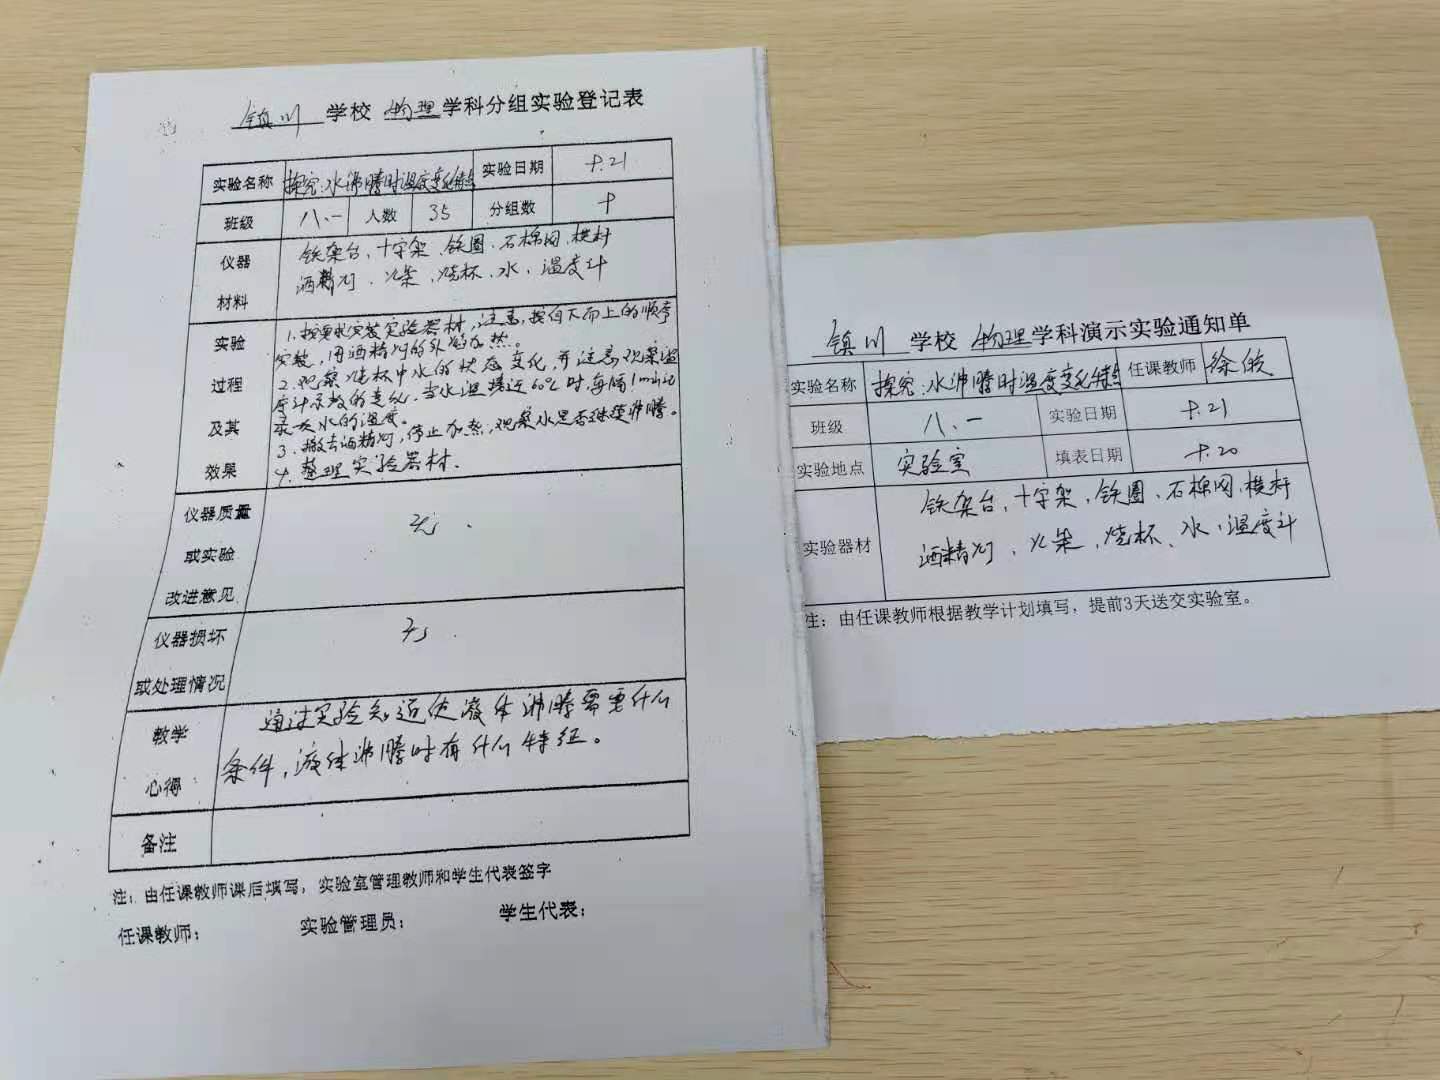 镇川 学校 物理 学科分组实验登记表
实验名称 探究:水沸腾时温度变化特点 实验日期 十.21
班级 八.一 人数 35 分组数 十
仪器材料 铁架台、十字架、铁圈、石棉网、横杆
酒精灯、火柴、烧杯、水、温度计
实验过程及其效果 1.按要求安装实验器材,注意,按自下而上的顺序
安装,用酒精灯的外焰加热。
2.观察烧杯中水的状态变化,并注意观察温
度计示数的变化,当水温接近60℃时,每隔1min记
录一次水的温度。
3.撤去酒精灯,停止加热,观察水是否继续沸腾。
4.整理实验器材.
仪器质量或实验改进意见 无.
仪器损坏或处理情况 无.
教学心得 通过实验知道使液体沸腾需要什么
条件,液体沸腾时有什么特征。
备注
注:由任课教师课后填写,实验室管理教师和学生代表签字
任课教师: 实验管理员: 学生代表:
镇川 学校 物理 学科演示实验通知单
实验名称 探究:水沸腾时温度变化特点 任课教师 徐
班级 八.一 实验日期 十.21
实验地点 实验室 填表日期 十.20
实验器材 铁架台、十字架、铁圈、石棉网、横杆
酒精灯、火柴、烧杯、水、温度计
注:由任课教师根据教学计划填写,提前3天送交实验室。